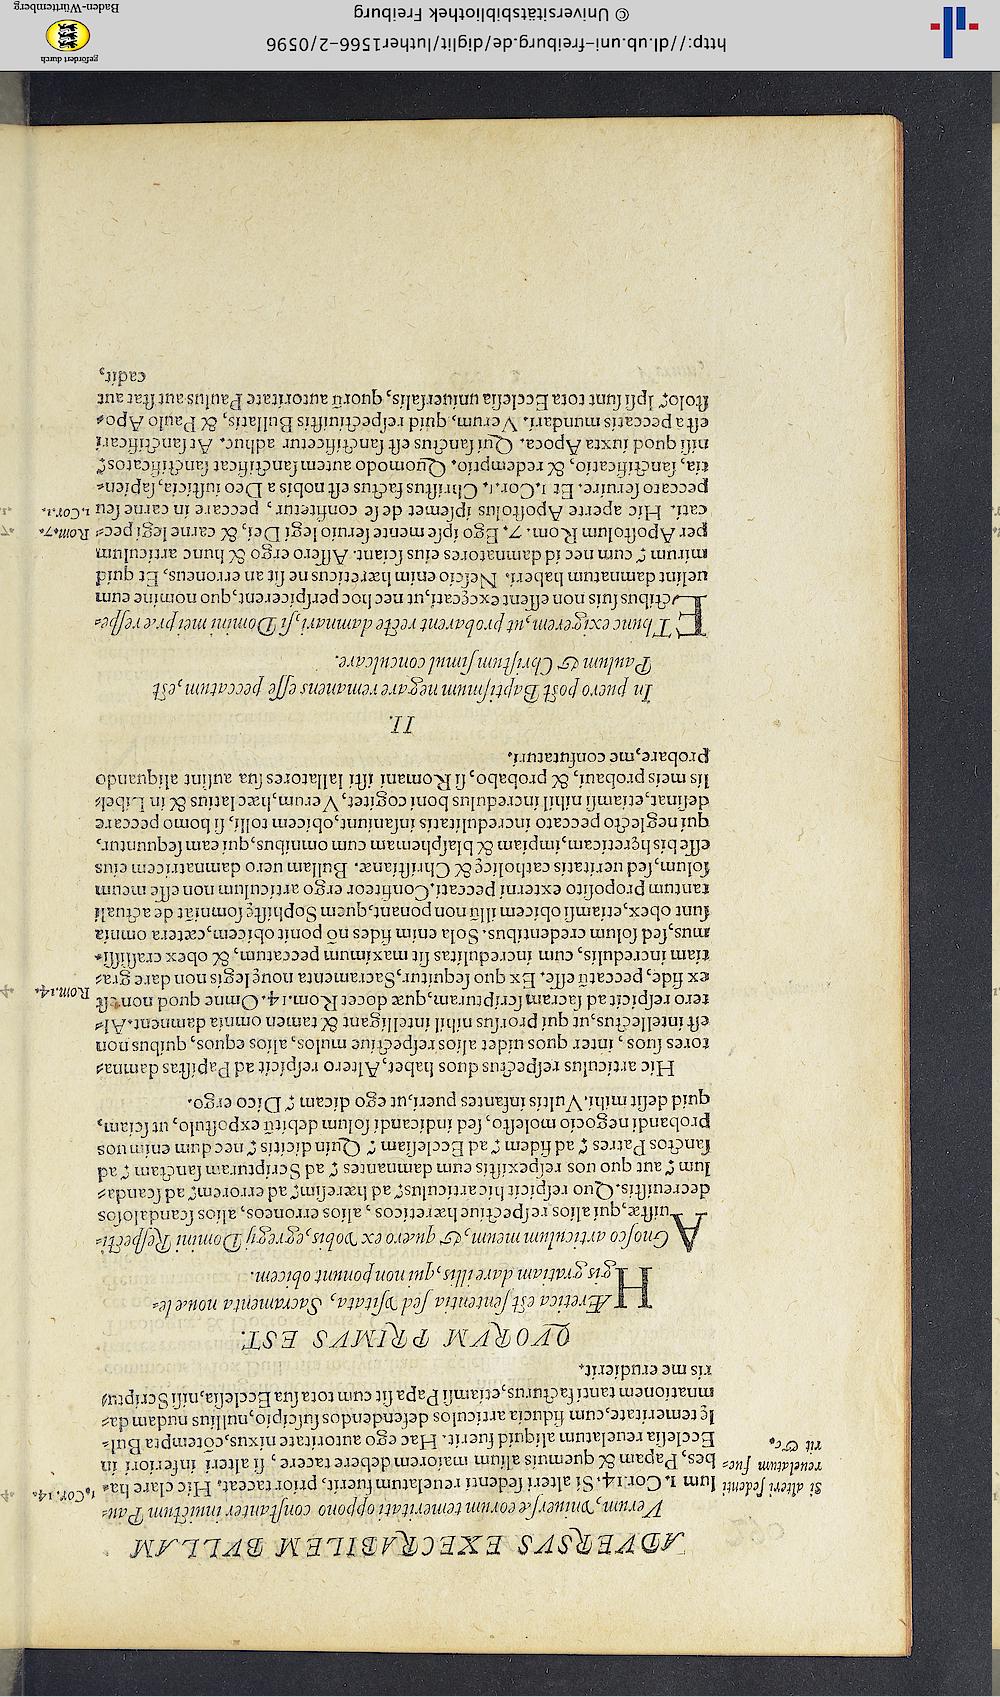 ADVERSVS EXECRABILEM BVLLAM
Verum, vniuersæ eorum temeritati oppono constanter inuictum Pau⸗
lum 1. Cor. 14. Si alteri sedenti reuelatum fuerit, prior taceat. Hic clare ha⸗
bes, Papam & quemuis alium maiorem debere tacere, si alteri inferiori in
Ecclesia reuelatum aliquid fuerit. Hac ego autoritate nixus, cōtempta Bul⸗
lę temeritate, cum fiducia articulos defendendos suscipio, nullius nudam da⸗
mnationem tanti facturus, etiamsi Papa sit cum tota sua Ecclesia, nisi Scriptu⸗
ris me erudierit.
si alteri sedenti
reuelatum fue⸗
rit &c.
1. Cor. 14.
QVORVM PRIMVS EST.
HÆretica est sententia sed vsitata, Sacramenta nouæ le⸗
gis gratiam dare illis, qui non ponunt obicem.
AGnosco articulum meum, & quæro ex vobis, egregij Domini Respecti⸗
uistæ, qui alios respectiue hæreticos, alios erroneos, alios scandalosos
decreuistis. Quo respicit hic articulus? ad hæresim? ad errorem? ad scanda⸗
lum? aut quo uos respexistis eum damnantes? ad Scripturam sanctam? ad
sanctos Patres? ad fidem? ad Ecclesiam? Quin dicitis? nec dum enim uos
probandi negocio molesto, sed indicandi solum debitū expostulo, ut sciam,
quid desit mihi. Vultis infantes pueri, ut ego dicam? Dico ergo.
Hic articulus respectus duos habet, Altero respicit ad Papistas damna⸗
tores suos, inter quos uidet alios respectiue mulos, alios equos, quibus non
est intellectus, ut qui prorsus nihil intelligant & tamen omnia damnent. Al⸗
tero respicit ad sacram scripturam, quæ docet Rom. 14. Omne quod non est
ex fide, peccatū esse. Ex quo sequitur, Sacramenta nouę legis non dare gra⸗
tiam incredulis, cum incredulitas sit maximum peccatum, & obex crassissi⸗
mus, sed solum credentibus. Sola enim fides nō ponit obicem, cætera omnia
sunt obex, etiamsi obicem illū non ponant, quem Sophistę somniāt de actuali
tantum proposito externi peccati. Confiteor ergo articulum non esse meum
solum, sed ueritatis catholicę & Christianæ. Bullam uero damnatricem eius
esse bis hęreticam, impiam & blasphemam cum omnibus, qui eam sequuntur,
qui neglecto peccato incredulitatis insaniunt, obicem tolli, si homo peccare
desinat, etiamsi nihil incredulus boni cogitet, Verum, hæc latius & in Libel⸗
lis meis probaui, & probabo, si Romani isti lallatores sua ausint aliquando
probare, me confutaturi.
Rom. 14.
II.
In puero post Baptismum negare remanens esse peccatum, est
Paulum & Christum simul conculcare.
ET hunc exigerem, ut probarent recte damnari, si Domini mei præ respe⸗
ctibus suis non essent excęcati, ut nec hoc perspicerent, quo nomine eum
uelint damnatum haberi. Nescio enim hæreticus ne sit an erroneus, Et quid
mirum? cum nec id damnatores eius sciant. Assero ergo & hunc articulum
per Apostolum Rom. 7. Ego ipse mente seruio legi Dei, & carne legi pec⸗
cati. Hic aperte Apostolus ipsemet de se confitetur, peccare in carne seu
peccato seruire. Et 1. Cor. 1. Christus factus est nobis a Deo iusticia, sapien⸗
tia, sanctificatio, & redemptio. Quomodo autem sanctificat sanctificatos?
nisi quod iuxta Apoca. Qui sanctus est sanctificetur adhuc. At sanctificari
esse a peccatis mundari. Verum, quid respectiuistis Bullatis, & Paulo Apo⸗
stolo? Ipsi sunt tota Ecclesia uniuersalis, quorū autoritate Paulus aut stat aut
cadit,
Rom. 7.
1. Cor. 1.
http://dl.ub.uni-freiburg.de/diglit/luther1566-2/0596
© Universitätsbibliothek Freiburg
gefördert durch
Baden-Württemberg